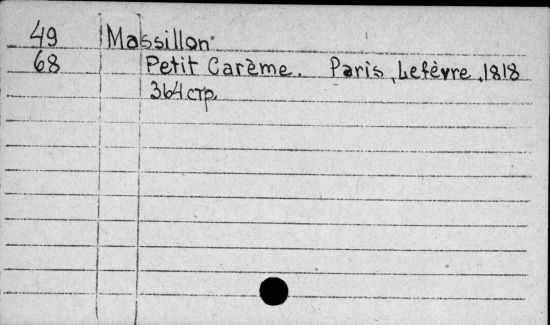 49 Massillon
68 Petit Carème. Paris, Lefèvre, 1818
364 стр.